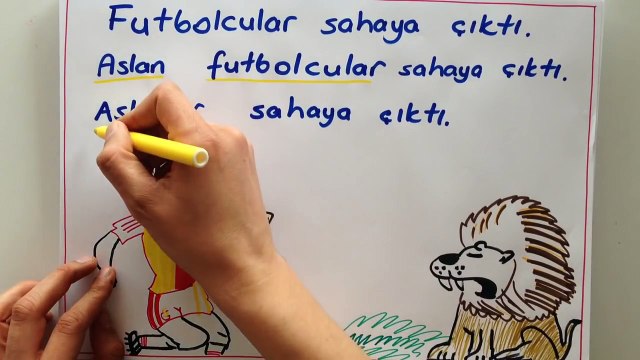 Futbolcular sahaya çıktı.
Aslan futbolcular sahaya çıktı.
sahaya çıktı.
G Y